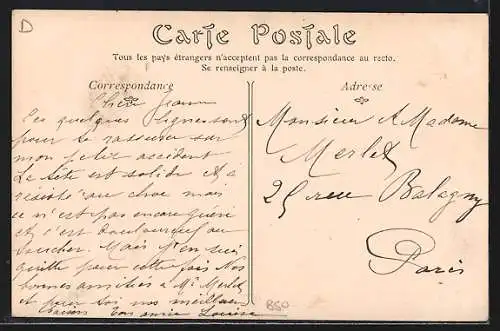 D
Carte Postale
Tous les pays étrangers n'acceptent pas la correspondance au recto.
Se renseigner à la poste.
Correspondance
Adresse
Chère Jeanne
Ces quelques lignes sont
pour te rassurer sur
mon petit accident
La tête est solide et a
résisté au choc mais
ce n'est pas encore guéri
et c'est douloureux au
toucher. Mais j'en suis
quitte pour cette fois Nos
bonnes amitiés à Mr Merlet
et pour toi nos meilleurs
baisers Ton amie Louise
Monsieur & Madame
Merlet
25 rue Balagny
Paris